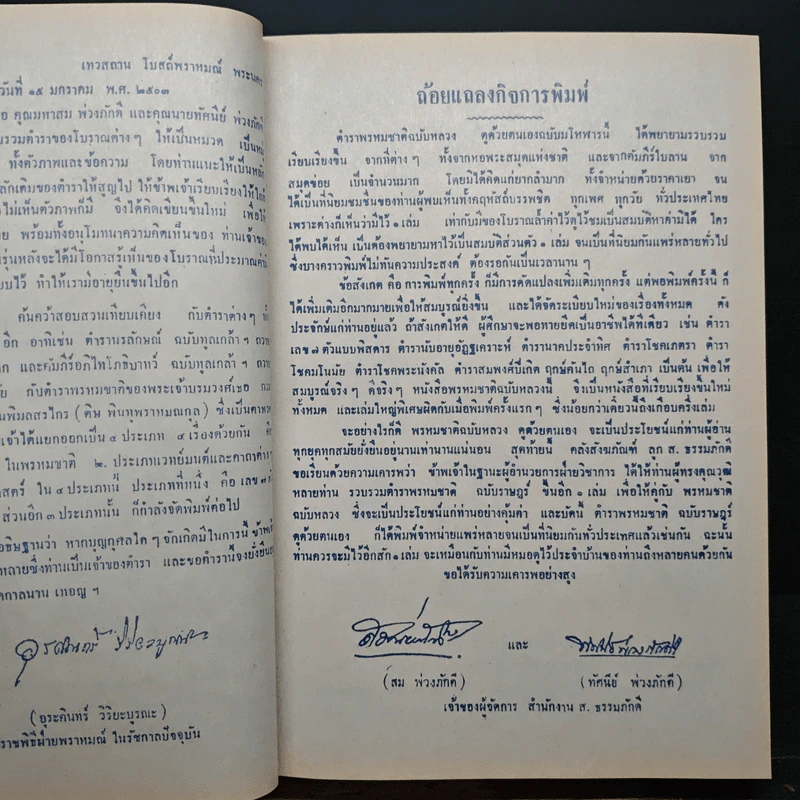 เทวสถาน โบสถ์พราหมณ์ พระนคร
วันที่ ๑๕ มกราคม พ.ศ. ๒๕๐๓
คุณมหาสม พ่วงภักดี และคุณนายทัศนีย์ พ่วงภักดี
บรวมตำราของโบราณต่างๆ ให้เป็นหมวด เป็นหมู่
ทั้งตัวภาพและข้อความ โดยท่านแนะให้เป็นหลัก
ลักเดิมของตำราให้สูญไป ให้ข้าพเจ้าเรียบเรียงให้ใกล้
ไม่เห็นตัวภาพก็มี จึงได้คิดเขียนขึ้นใหม่ เพื่อให้
พร้อมทั้งอนุโมทนาความคิดเห็นของ ท่านเจ้าของ
รุ่นหลังจะได้มีโอกาสรู้เห็นของโบราณที่ประมาณค่า
บไว้ ทำให้เรามีอายุยืนขึ้นไปอีก
ค้นคว้าสอบสวนเทียบเคียง กับตำราต่างๆ
อีก อาทิเช่น ตำรานรลักษณ์ ฉบับทูลเกล้าฯ
และคัมภีร์อภิไทโภธิบาทว์ ฉบับทูลเกล้าฯ
กับตำราพรหมชาติของพระเจ้าบรมวงศ์เธอ
นพิมลสรไกร (ดิษ พินทุพราหมณกุล) ซึ่งเป็น
เจ้าได้แยกออกเป็น ๔ ประเภท ๔ เรื่องด้วยกัน คือ
ในพรหมชาติ ๒. ประเภทเวทย์มนต์และคาถาต่าง
สตร์ ใน ๔ ประเภทนี้ ประเภทที่หนึ่ง คือ เลข ๗
ส่วนอีก ๓ ประเภทนั้น ก็กำลังจัดพิมพ์ต่อไป
อธิษฐานว่า หากบุญกุศลใดๆ จักเกิดมีในการนี้
หลายซึ่งท่านเป็นเจ้าของตำรา และขอตำรานี้จงยั่งยืน
ดกาลนาน เทอญ ฯ
(อุระคินทร์ วิริยะบูรณะ)
ราชพิธีฝ่ายพราหมณ์ ในรัชกาลปัจจุบัน
ถ้อยแถลงกิจการพิมพ์
ตำราพรหมชาติฉบับหลวง ดูด้วยตนเองฉบับมโหฬารนี้ ได้พยายามรวบรวม
เรียบเรียงขึ้น จากที่ต่างๆ ทั้งจากหอพระสมุดแห่งชาติ และจากคัมภีร์ใบลาน จาก
สมุดข่อย เป็นจำนวนมาก โดยมิได้คิดแก่ยากลำบาก ทั้งจำหน่ายด้วยราคาเยา จน
ได้เป็นที่นิยมชมชื่นของท่านผู้พบเห็นทั้งฤหัสถ์บรรพชิต ทุกเพศ ทุกวัย ทั่วประเทศไทย
เพราะต่างก็เห็นว่ามีไว้ ๑ เล่ม เท่ากับมีของโบราณล้ำค่าไว้ดูไว้ชมเป็นสมบัติหาค่ามิได้ ใคร
ได้พบได้เห็น เป็นต้องพยายามหาไว้เป็นสมบัติส่วนตัว ๑ เล่ม จนเป็นที่นิยมกันแพร่หลายทั่วไป
ซึ่งบางคราวพิมพ์ไม่ทันความประสงค์ ต้องรอกันเป็นเวลานานๆ
ข้อสังเกต คือ การพิมพ์ทุกครั้ง ก็มีการดัดแปลงเพิ่มเติมทุกครั้ง แต่พอพิมพ์ครั้งนี้ ก็
ได้เพิ่มเติมอีกมากมายเพื่อให้สมบูรณ์ยิ่งขึ้น และได้จัดระเบียบใหม่ของเรื่องทั้งหมด ดัง
ประจักษ์แก่ท่านอยู่แล้ว ถ้าสังเกตให้ดี ผู้ศึกษาจะพอทายยึดเป็นอาชีพได้ทีเดียว เช่น ตำรา
เลข ๗ ตัวแบบพิสดาร ตำรานับอายุอัฏฐเคราะห์ ตำรานาคประจำทิศ ตำราโชคเภตรา ตำรา
โชคมโนมัย ตำราโชคพระนังคัล ตำราสมพงศ์ปี่เกิด ฤกษ์คันไถ ฤกษ์สำเภา เป็นต้น เพื่อให้
สมบูรณ์จริงๆ ดีจริงๆ หนังสือพรหมชาติฉบับหลวงนี้ จึงเป็นหนังสือที่เรียบเรียงขึ้นใหม่
ทั้งหมด และเล่มใหญ่พิเศษผิดกับเมื่อพิมพ์ครั้งแรกๆ ซึ่งน้อยกว่าเดี๋ยวนี้ถึงเกือบครึ่งเล่ม
จะอย่างไรก็ดี พรหมชาติฉบับหลวง ดูด้วยตนเอง จะเป็นประโยชน์แก่ท่านผู้อ่าน
ทุกยุคทุกสมัยยั่งยืนอยู่นานเท่านานแน่นอน สุดท้ายนี้ คลังสังฆภัณฑ์ ลูก ส. ธรรมภักดี
ขอเรียนด้วยความเคารพว่า ข้าพเจ้าในฐานะผู้อำนวยการฝ่ายวิชาการ ได้ให้ท่านผู้ทรงคุณวุฒิ
หลายท่าน รวบรวมตำราพรหมชาติ ฉบับราษฎร์ ขึ้นอีก ๑ เล่ม เพื่อให้คู่กับ พรหมชาติ
ฉบับหลวง ซึ่งจะเป็นประโยชน์แก่ท่านอย่างคุ้มค่า และบัดนี้ ตำราพรหมชาติ ฉบับราษฎร์
ดูด้วยตนเอง ก็ได้พิมพ์จำหน่ายแพร่หลายจนเป็นที่นิยมกันทั่วประเทศแล้วเช่นกัน ฉะนั้น
ท่านควรจะมีไว้อีกสัก ๑ เล่ม จะเหมือนกับท่านมีหมอดูไว้ประจำบ้านของท่านถึงหลายคนด้วยกัน
ขอได้รับความเคารพอย่างสูง
และ
(สม พ่วงภักดี) (ทัศนีย์ พ่วงภักดี)
เจ้าของผู้จัดการ สำนักงาน ส. ธรรมภักดี